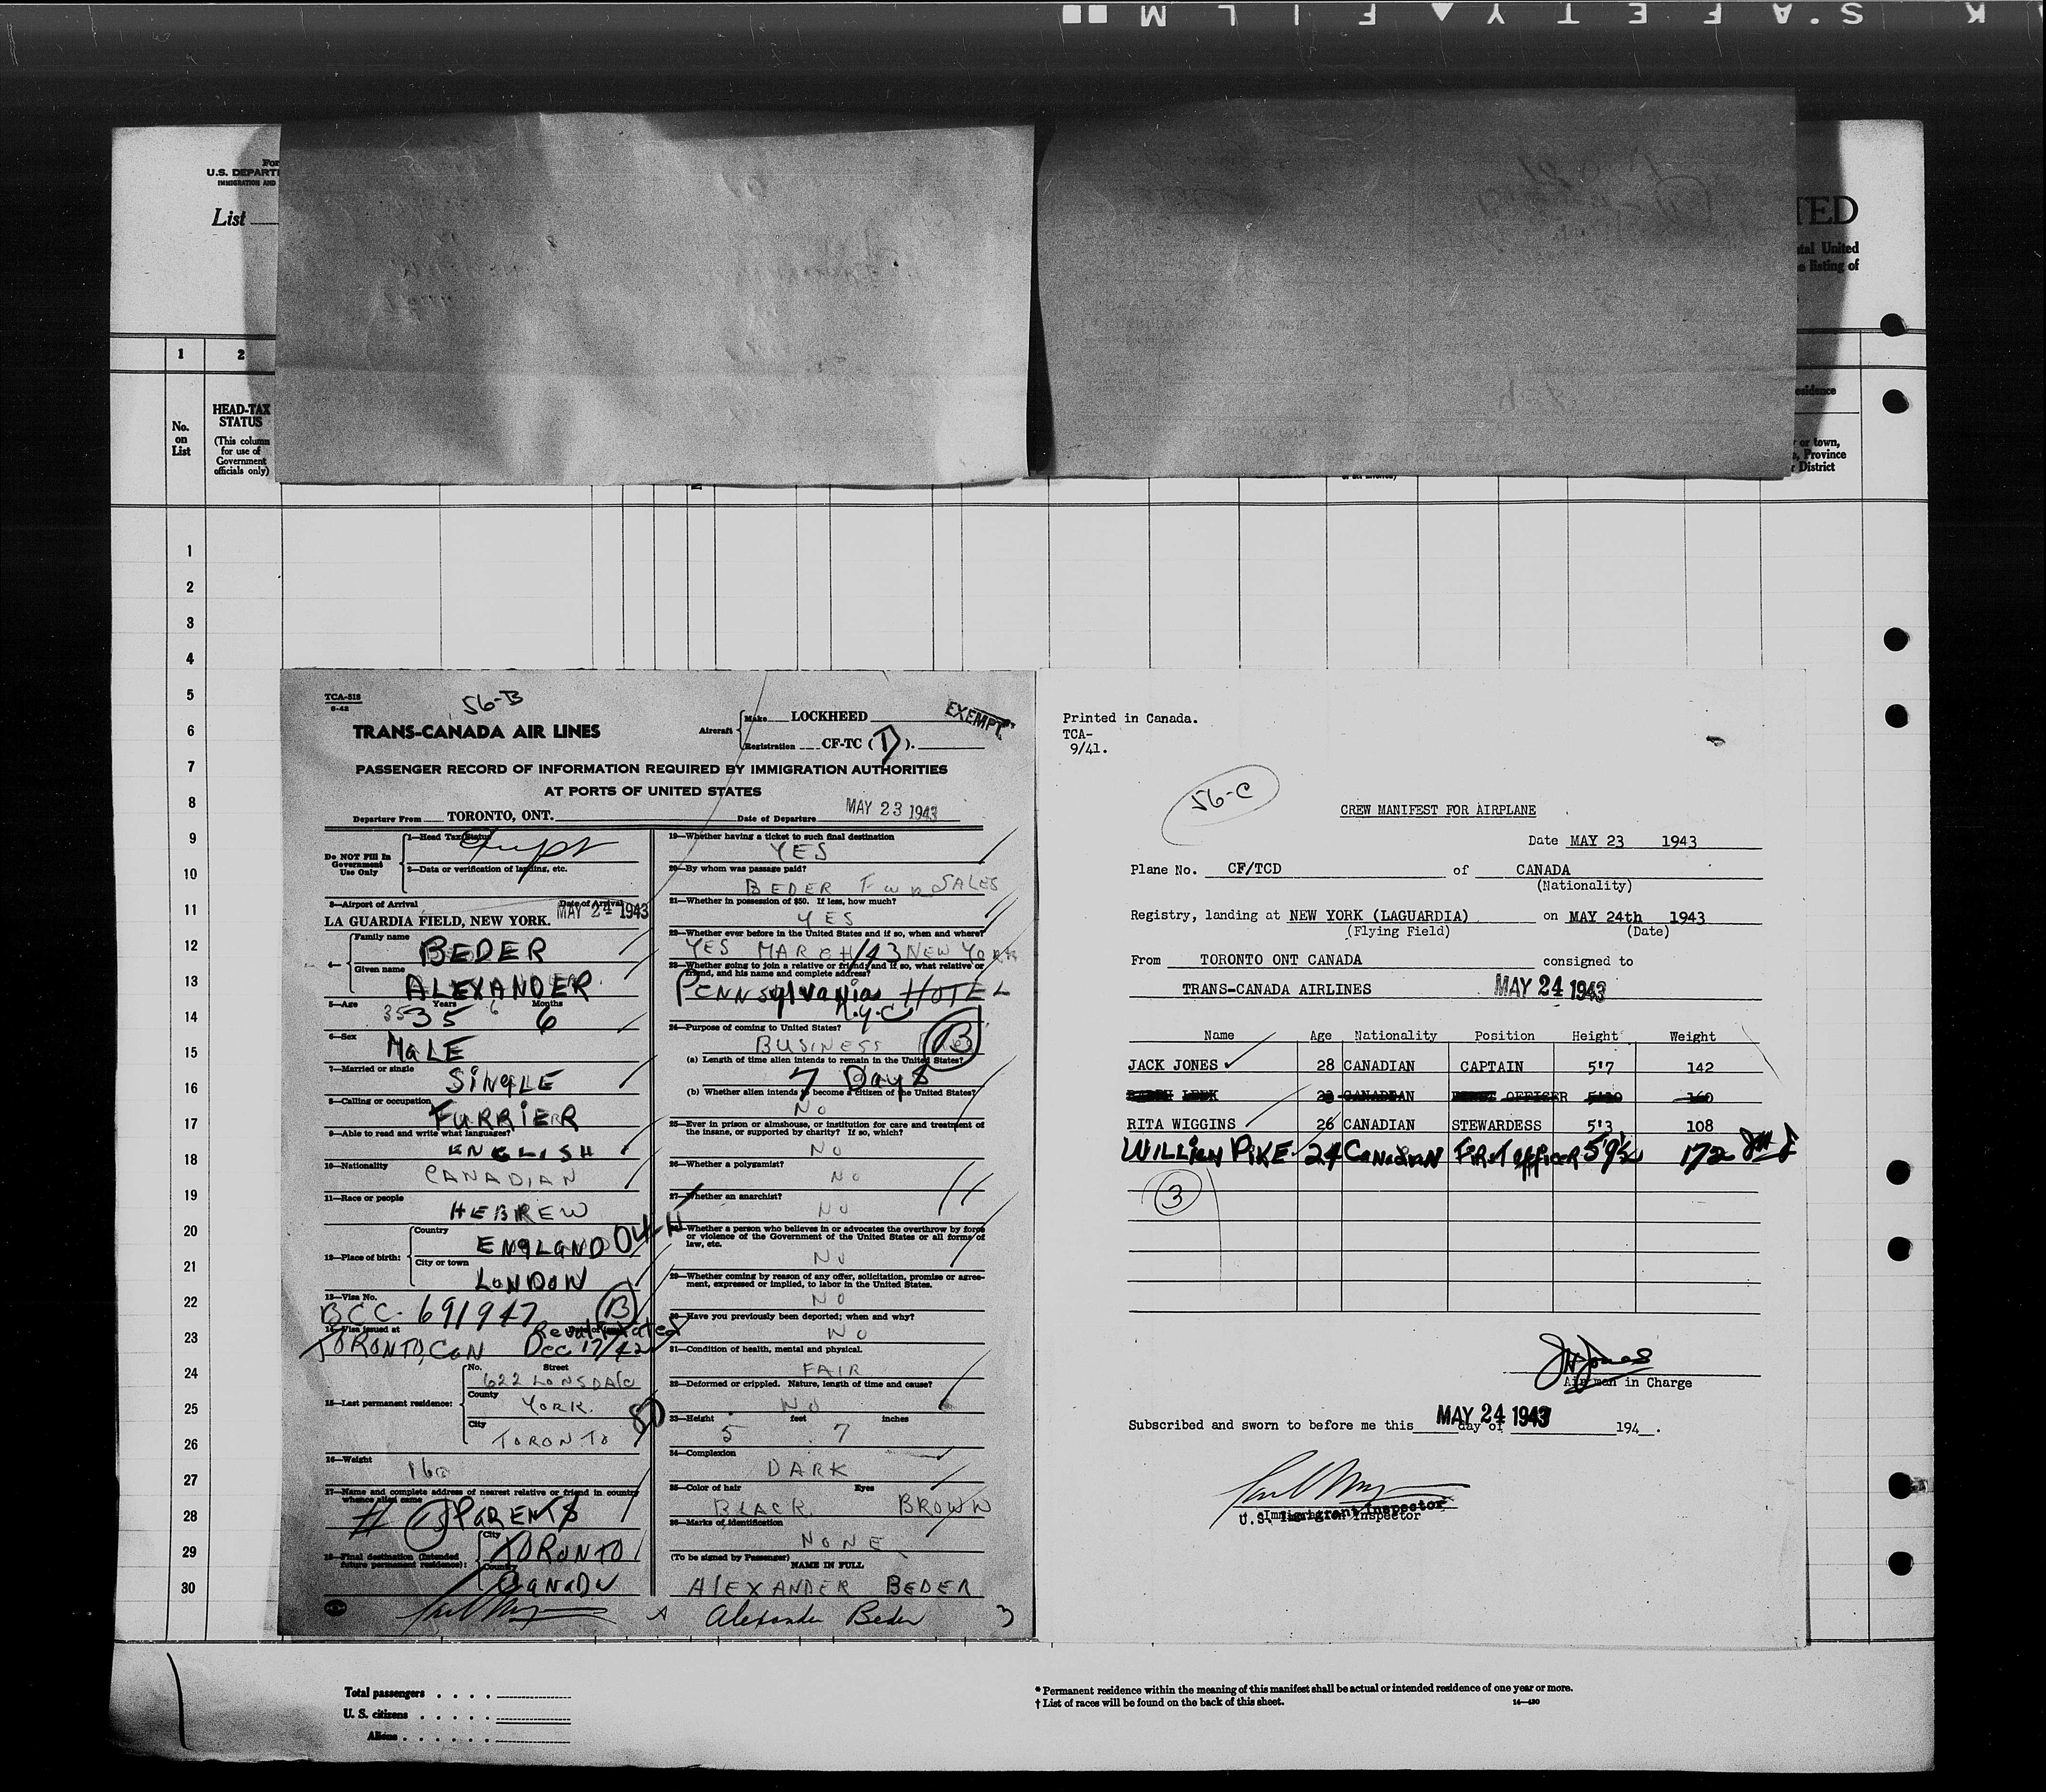 S.AFETY FILM
For
U.S. DEPARTM
IMMIGRATION AND
List
TED
tal United
e listing of
1
2
esidence
No.
on
List
HEAD-TAX
STATUS
(This column
for use of
Government
officials only)
or town,
, Province
District
1
2
3
4
5
6
7
8
9
10
11
12
13
14
15
16
17
18
19
20
21
22
23
24
25
26
27
28
29
30
TCA-818
6-42
56-B
TRANS-CANADA AIR LINES
Aircraft
Make LOCKHEED
Registration CF-TC (D).
EXEMPT
PASSENGER RECORD OF INFORMATION REQUIRED BY IMMIGRATION AUTHORITIES
AT PORTS OF UNITED STATES
Departure From TORONTO, ONT.
Date of Departure MAY 23 1943
Do NOT Fill In
Government
Use Only
1—Head Tax Status
Exempt
2—Data or verification of landing, etc.
3—Airport of Arrival
Date of Arrival
LA GUARDIA FIELD, NEW YORK. MAY 24 1943
4—
Family name
BEDER
Given name
ALEXANDER
5—Age
Years
Months
35 35 6 6
6—Sex
MALE
7—Married or single
SINGLE
8—Calling or occupation
FURRIER
9—Able to read and write what languages?
ENGLISH
10—Nationality
CANADIAN
11—Race or people
HEBREW
12—Place of birth:
Country
ENGLAND 04-H
City or town
LONDON
13—Visa No.
BCC-691947 B
14—Visa issued at
Revalidated
TORONTO, CAN Dec 17/42
15—Last permanent residence:
No. Street
622 LONSDALE
County
YORK.
City
TORONTO
80
16—Weight
160
17—Name and complete address of nearest relative or friend in country
whence alien came
# B PARENTS
18—Final destination (Intended
future permanent residence):
City
TORONTO
Country
CANADA
19—Whether having a ticket to such final destination
YES
20—By whom was passage paid?
BEDER FUR SALES
21—Whether in possession of $50. If less, how much?
YES
22—Whether ever before in the United States and if so, when and where?
YES MARCH/43 NEW YORK
23—Whether going to join a relative or friend; and if so, what relative or
friend, and his name and complete address?
PENNSylvania HOTEL
N.Y.C
24—Purpose of coming to United States?
BUSINESS B
(a) Length of time alien intends to remain in the United States?
7 Days
(b) Whether alien intends to become a citizen of the United States?
NO
25—Ever in prison or almshouse, or institution for care and treatment of
the insane, or supported by charity? If so, which?
NO
26—Whether a polygamist?
NO
27—Whether an anarchist?
NO
28—Whether a person who believes in or advocates the overthrow by force
or violence of the Government of the United States or all forms of
law, etc.
NO
29—Whether coming by reason of any offer, solicitation, promise or agree-
ment, expressed or implied, to labor in the United States.
NO
30—Have you previously been deported; when and why?
NO
31—Condition of health, mental and physical.
FAIR
32—Deformed or crippled. Nature, length of time and cause?
NO
33—Height feet inches
5 7
34—Complexion
DARK
35—Color of hair Eyes
BLACK BROWN
36—Marks of identification
NONE
(To be signed by Passenger)
NAME IN FULL
ALEXANDER BEDER
A Alexander Beder 3
Printed in Canada.
TCA-
9/41.
56-C
CREW MANIFEST FOR AIRPLANE
Date MAY 23 1943
Plane No. CF/TCD of CANADA
(Nationality)
Registry, landing at NEW YORK (LAGUARDIA) on MAY 24th 1943
(Flying Field) (Date)
From TORONTO ONT CANADA consigned to
TRANS-CANADA AIRLINES MAY 24 1943
Name Age Nationality Position Height Weight
JACK JONES 28 CANADIAN CAPTAIN 5'7 142
CANADIAN OFFICER 160
RITA WIGGINS 26 CANADIAN STEWARDESS 5'3 108
WILLIAM PIKE 24 CANADIAN FIRST OFFICER 5'9½ 172
3
J H Jones
Airman in Charge
Subscribed and sworn to before me this MAY 24 1943 day of 194 .
Immigration Inspector
U.S. Immigrant Inspector
Total passengers . . . .
U. S. citizens . . . . .
Aliens . . . . . .
* Permanent residence within the meaning of this manifest shall be actual or intended residence of one year or more.
† List of races will be found on the back of this sheet.
14—430